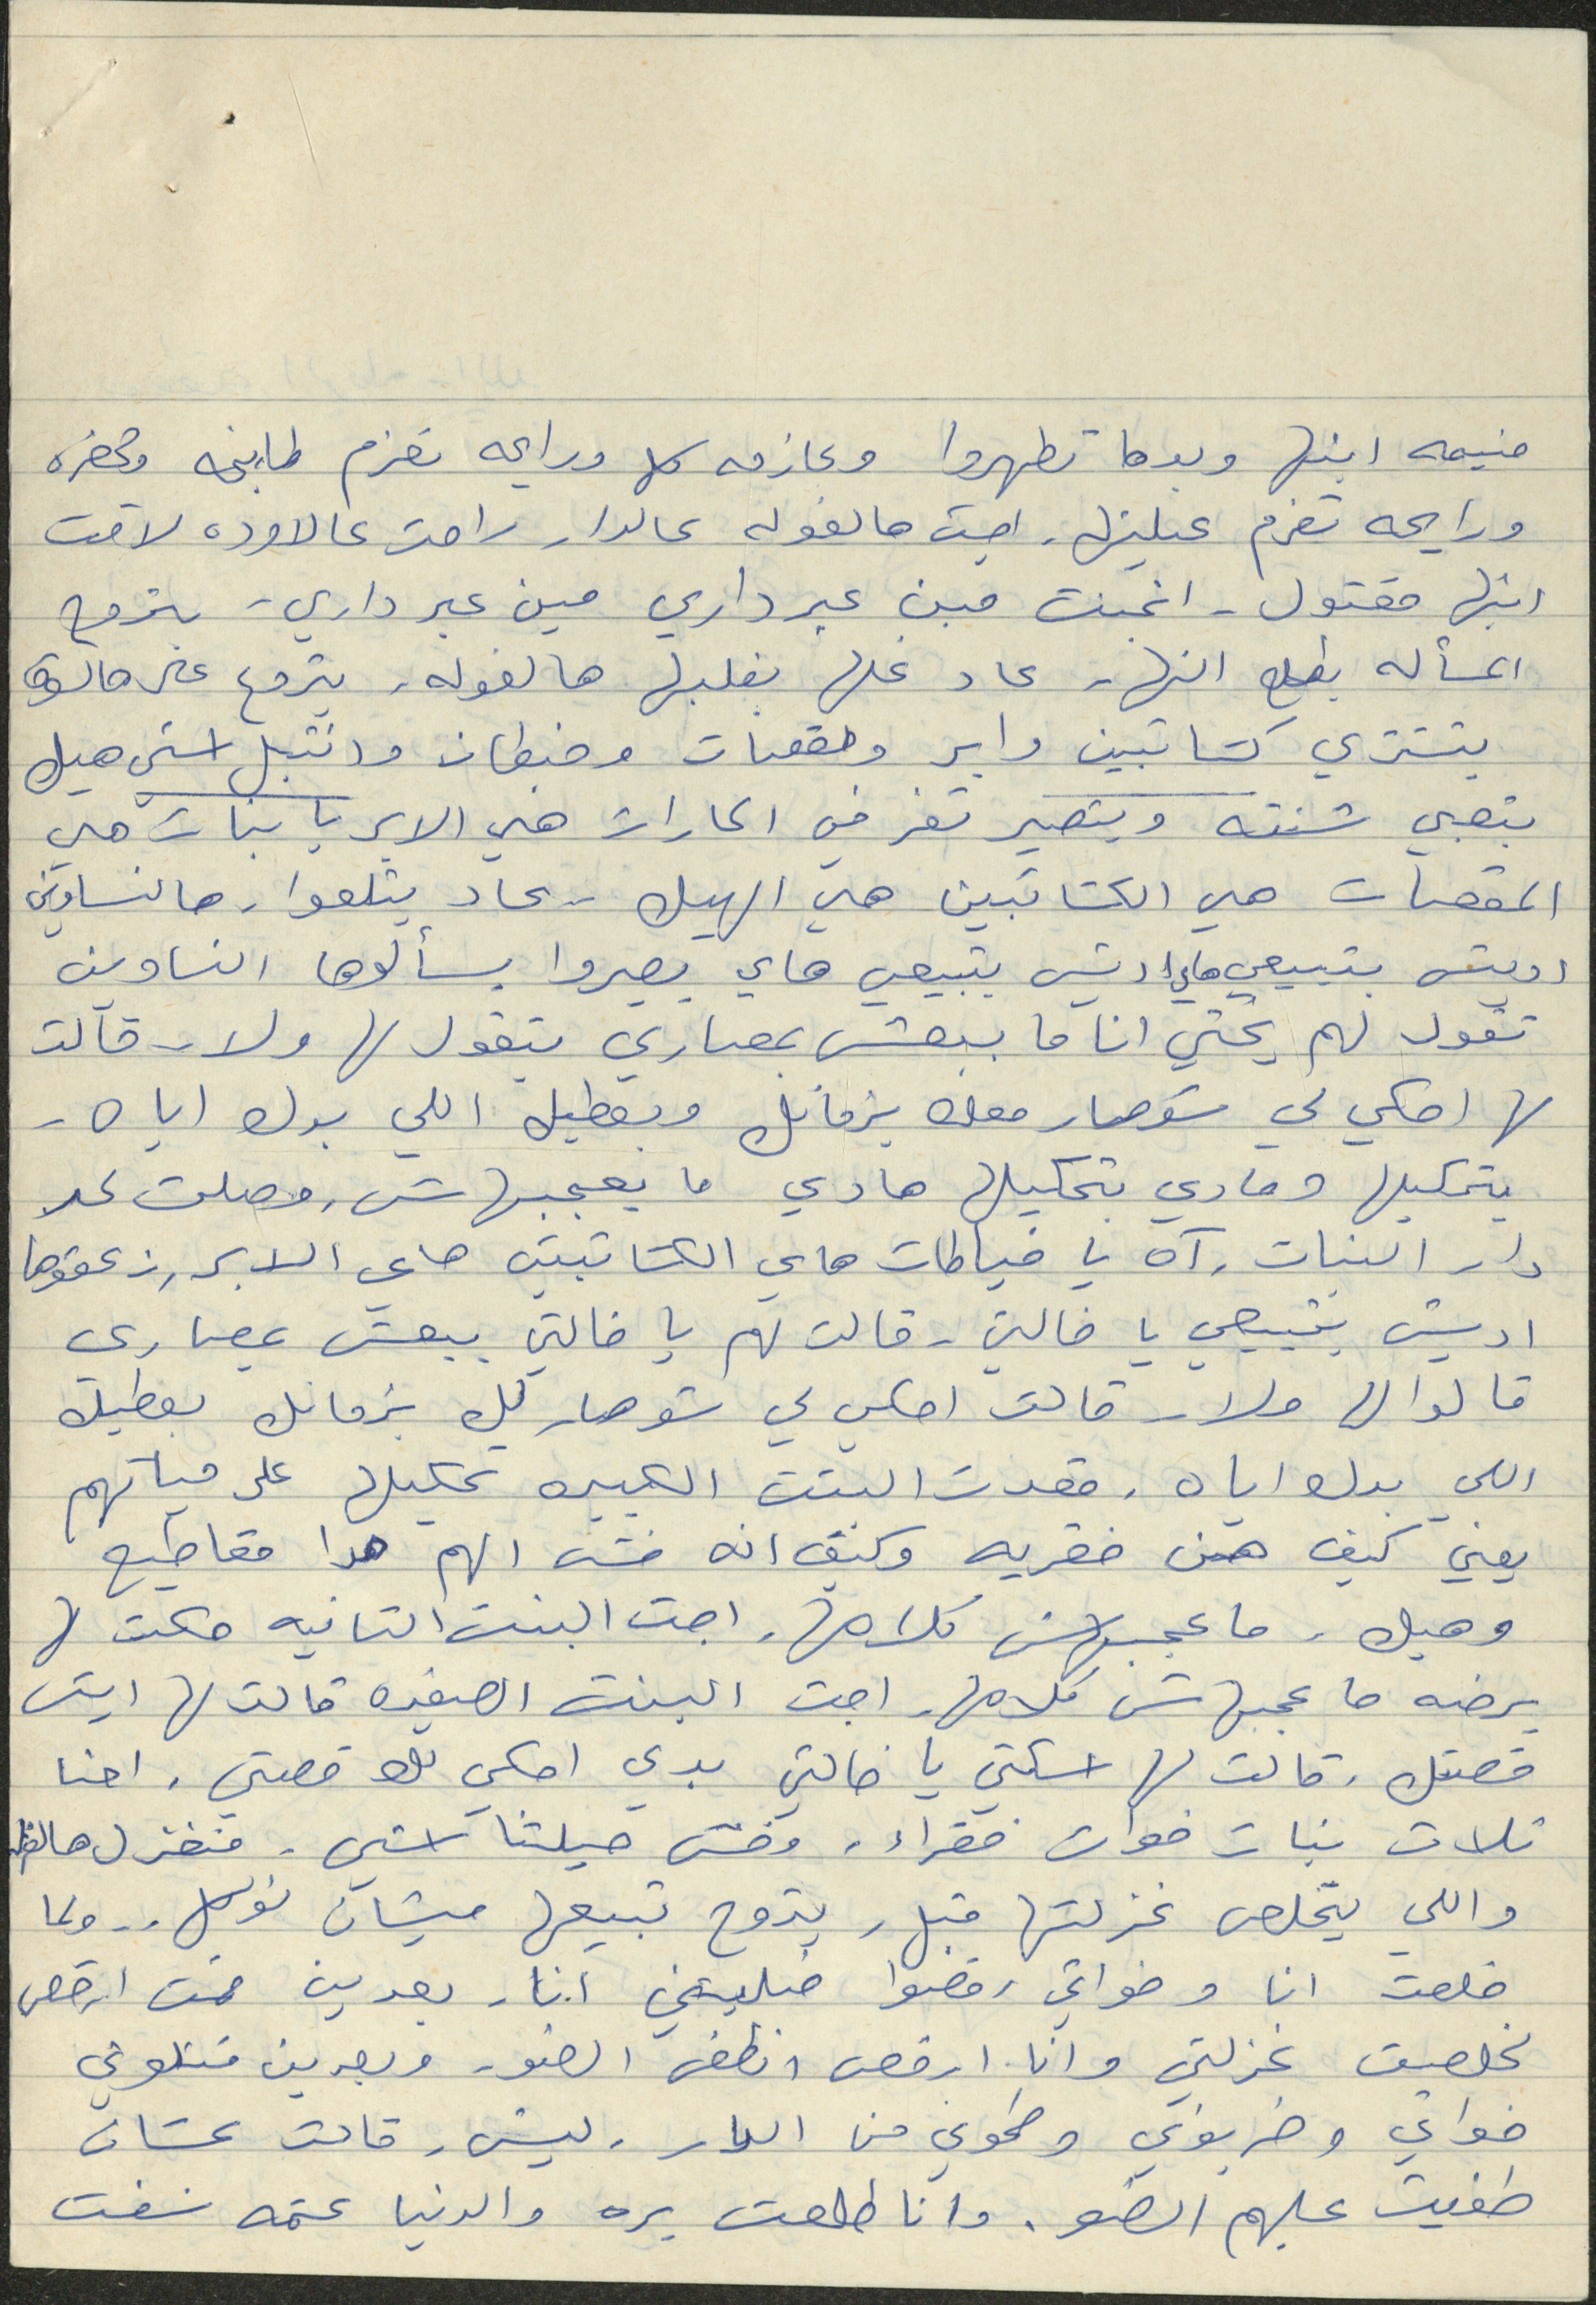 منيمه ابنها وبدها تطهروا وعازمه كل ورايحه تعزم طابخه ومحضره
ورايحه تعزم عيلتها. اجت هالغوله عالدار راحت عالاوده لاقت
ابنها مقتول - انجنت مين عبر داري مين عبر داري - بتروح
المسأله بطلع النهار - عاد غلها بقلبها هالغوله. بتروح على هالسوق
بتشتري كشاتبين وابر ومقصات وخيطان واشي هيك
بتعبي شنته وبتصير تفر في الحارات هي الابر يا بنات هي
المقصات هي الكشاتبين هي الهيك - عاد يتلموا هالنساوين
اديش بتبيعي هاي اديش بتبيعي هاي يصيروا يسألوها النساوين
تقول لهم يختي انا ما ببيعش بمصاري بتقول لها ولا - قالت
لها احكي لي شو صار معك بزمانك وبعطيك اللي بدك اياه -
بتحكيلها وهادي بتحكيلها هادي ما يعجبهاش. وصلت لحد
دار البنات. آه يا خياطات هاي الكشاتبين هاي الابر. زعقوها
اديش بتبيعي يا خالتي - قالت لهم يا خالتي ببيعش بمصاري
قالوا لها ولا - قالت احكي لي شو صار لك بزمانك بعطيك
اللي بدك اياه. قعدت البنت الكبيره تحكيلها على حياتهم
يعني كيف هن فقريه وكيف انه فش الهم حدا مقاطيع
وهيك. ما عجبهاش كلامها. اجت البنت التانيه حكت لها
برضه ما عجبهاش كلامها. اجت البنت الصغيره قالت لها ايش
قصتك. قالت لها اسكتي يا خالتي بدي احكي لك قصتي. احنا
تلات بنات خوات فقراء. وفش حيلتنا اشي. منغزل هالغزل
واللي بتخلص غزلتها قبل بتروح تبيعها مشان نوكل.. ولما
خلصت انا وخواتي رفضوا يخلوني انا. بعدين قمت ارقص
خلصت غزلتي وانا ارقص انطفى الضو. وبعدين قتلوني
خواتي وضربوني وطحوني من الدار. ليش. قالت عشان
طفيت عليهم الضو. وانا طلعت بره والدنيا عتمه شفت